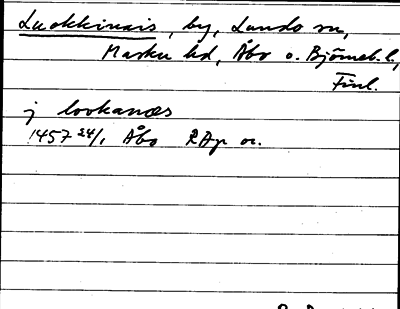 Luokkinais, by, Lundo sn,
Masku hd, Åbo o. Björneb. l,
Finl.
j lookanæs
1457 24/1 Åbo RAp or.